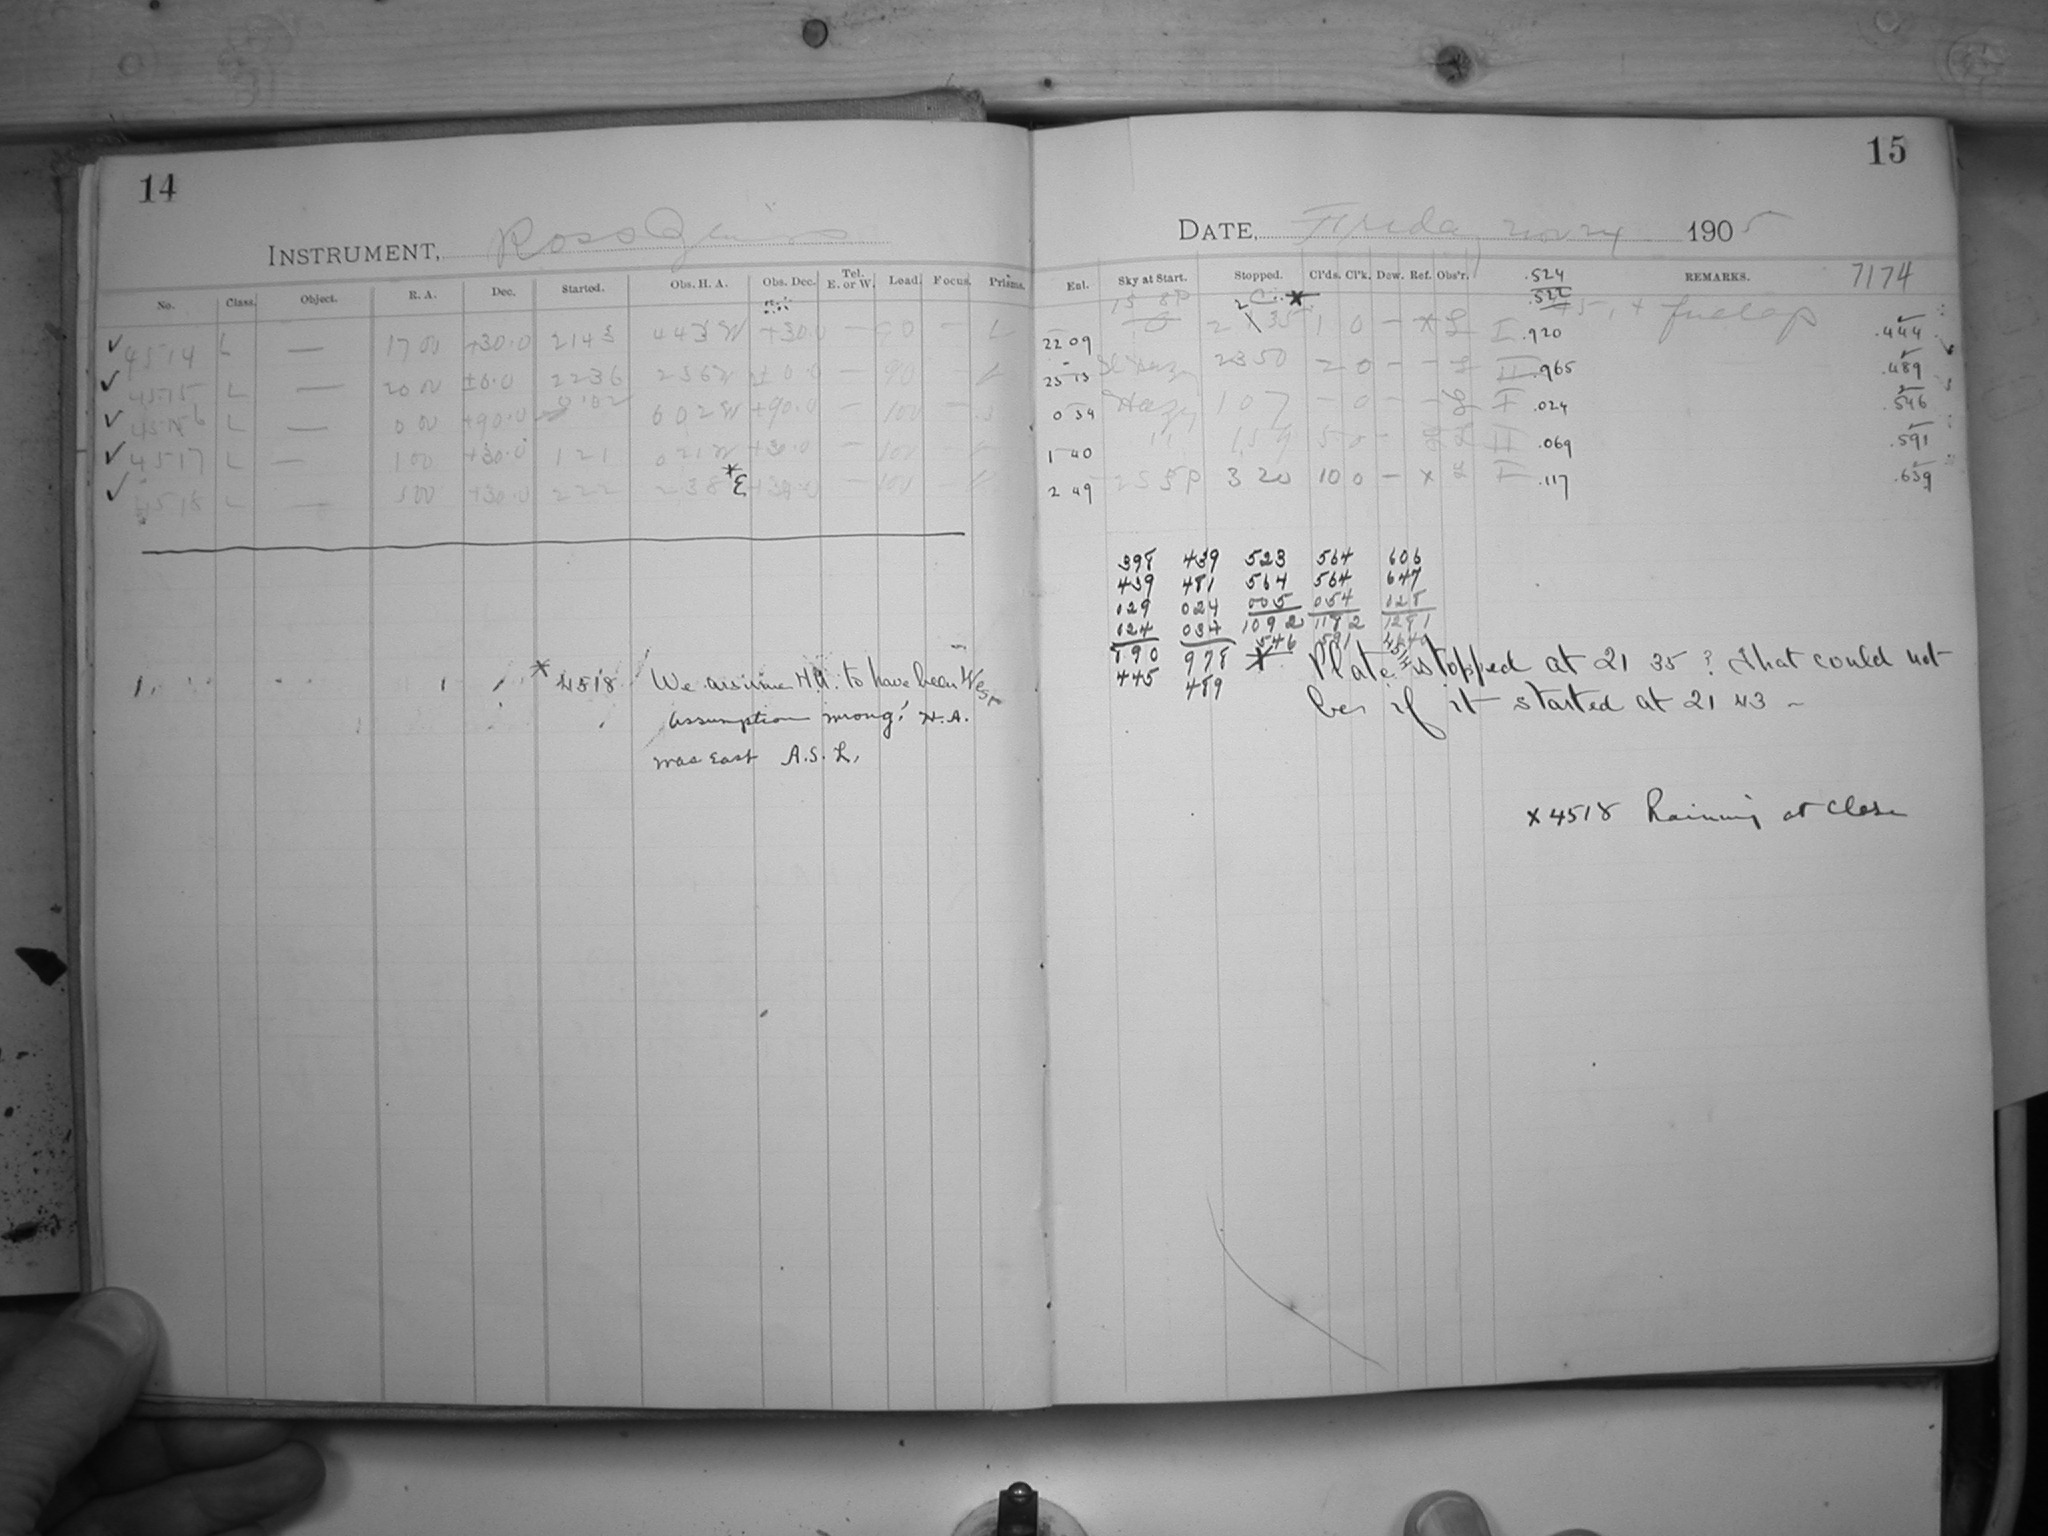 14
INSTRUMENT, Ross
No. Class. Object. R. A. Dec. Started. Obs. H. A. Obs. Dec. Tel. E. or W. Load. Focus. Prisms.
✓ 4514 L — 17 00 +30.0 2143 443 W +30.0 — 90 — L
✓ 4515 L — 20 00 ±0.0 2236 256 W ±0.0 — 90 —
✓ 4516 L — 0 00 +90.0 0 02 602 W +90.0 — 100 —
✓ 4517 L — 1 00 +30.0 1 21 021 W +30.0 — 100 —
✓ 4518 L — 5 00 +30.0 2 22 238 *E +30.0 — 100 —
* 4518 We assume H.A. to have been West
assumption wrong! H.A.
was East A.S.L.
15
DATE, Friday Nov 24 1905
Ent. Sky at Start. Stopped. Cl'ds. Cl'k. Dew. Ref. Obs'r. .524 REMARKS. 7174
.522
22 09 2 35 * 1 0 — x L I .920 .444
23 13 Hazy 2350 2 0 — — L II .965 .489
0 34 Hazy 1 07 — 0 — — L I .024 .546
1 40 " 1 59 5 0 — L II .069 .591
2 49 255P 3 20 10 0 — x L I .117 .639
398 439 523 564 606
439 481 564 564 647
029 024 005 054 028
024 034 1092 1182 1281
890 978 546 591
445 489
* Plate 4514 stopped at 21 35? That could not
be, if it started at 21 43 –
x 4518 Raining at close